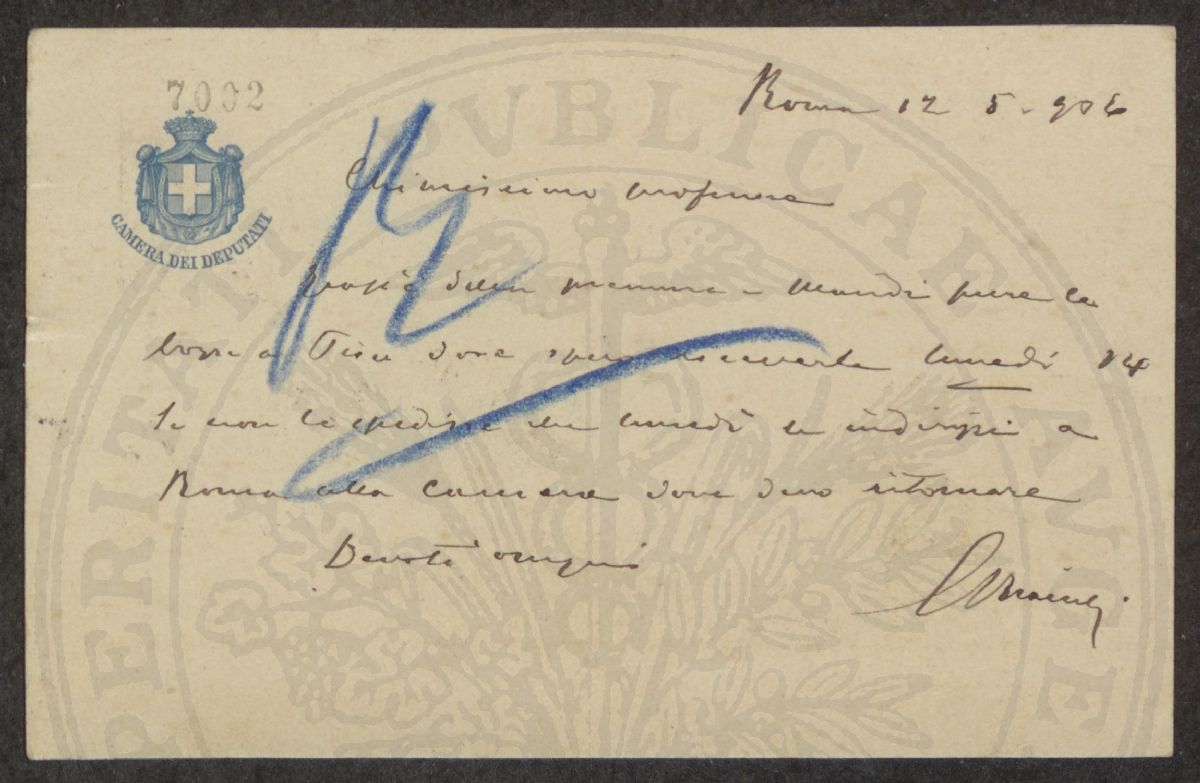 7002
CAMERA DEI DEPUTATI
Roma 12 5 - 906
Chiarissimo professore
Grazie della premura - Mandi pure le
bozze a Pisa dove spero riceverle lunedì 14
Se non le spedisse lunedì le indirizzi a
Roma alla Camera dove devo ritornare
Devoti ossequi
PERITAT PVBLICAE AVGE